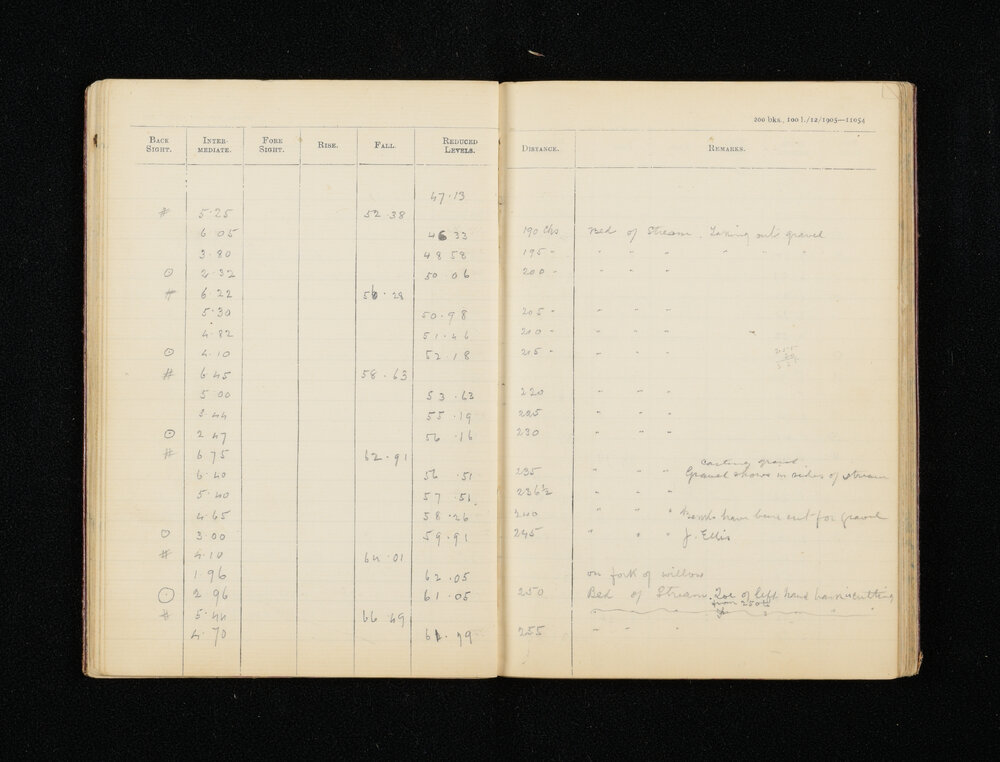 200 bks., 100 l./12/1905—11054
BACK SIGHT. INTERMEDIATE. FORE SIGHT. RISE. FALL. REDUCED LEVELS. DISTANCE. REMARKS.
47.13
# 5.25 52.38
6.05 46 33 190 Chs Bed of Stream. Taking out gravel
3.80 48 58 195 - " " " " " "
⊙ 2.32 50.06 200 - " " "
# 6.22 56.28
5.30 50.98 205 - " " "
4.82 51.46 210 - " " " "
⊙ 4.10 52.18 215 - " " "
# 6.45 58.63
5.00 53.63 220 " " "
3.44 55.19 225 " " "
⊙ 2.47 56.16 230 " " "
# 6.75 62.91
Carting gravel
6.40 56.51 235 " " " Gravel shows in sides of stream
5.40 57.51 236½ " " "
4.65 58.26 240 " " " Bends have been cut for gravel
⊙ 3.00 59.91 245 " " " J. Ellis
# 4.10 64.01
1.96 62.05 on fork of willow
⊙ 2.96 61.05 250 Bed of Stream. Toe of left hand cutting
from 250
# 5.44 66.49
4.70 61.79 255 " " "